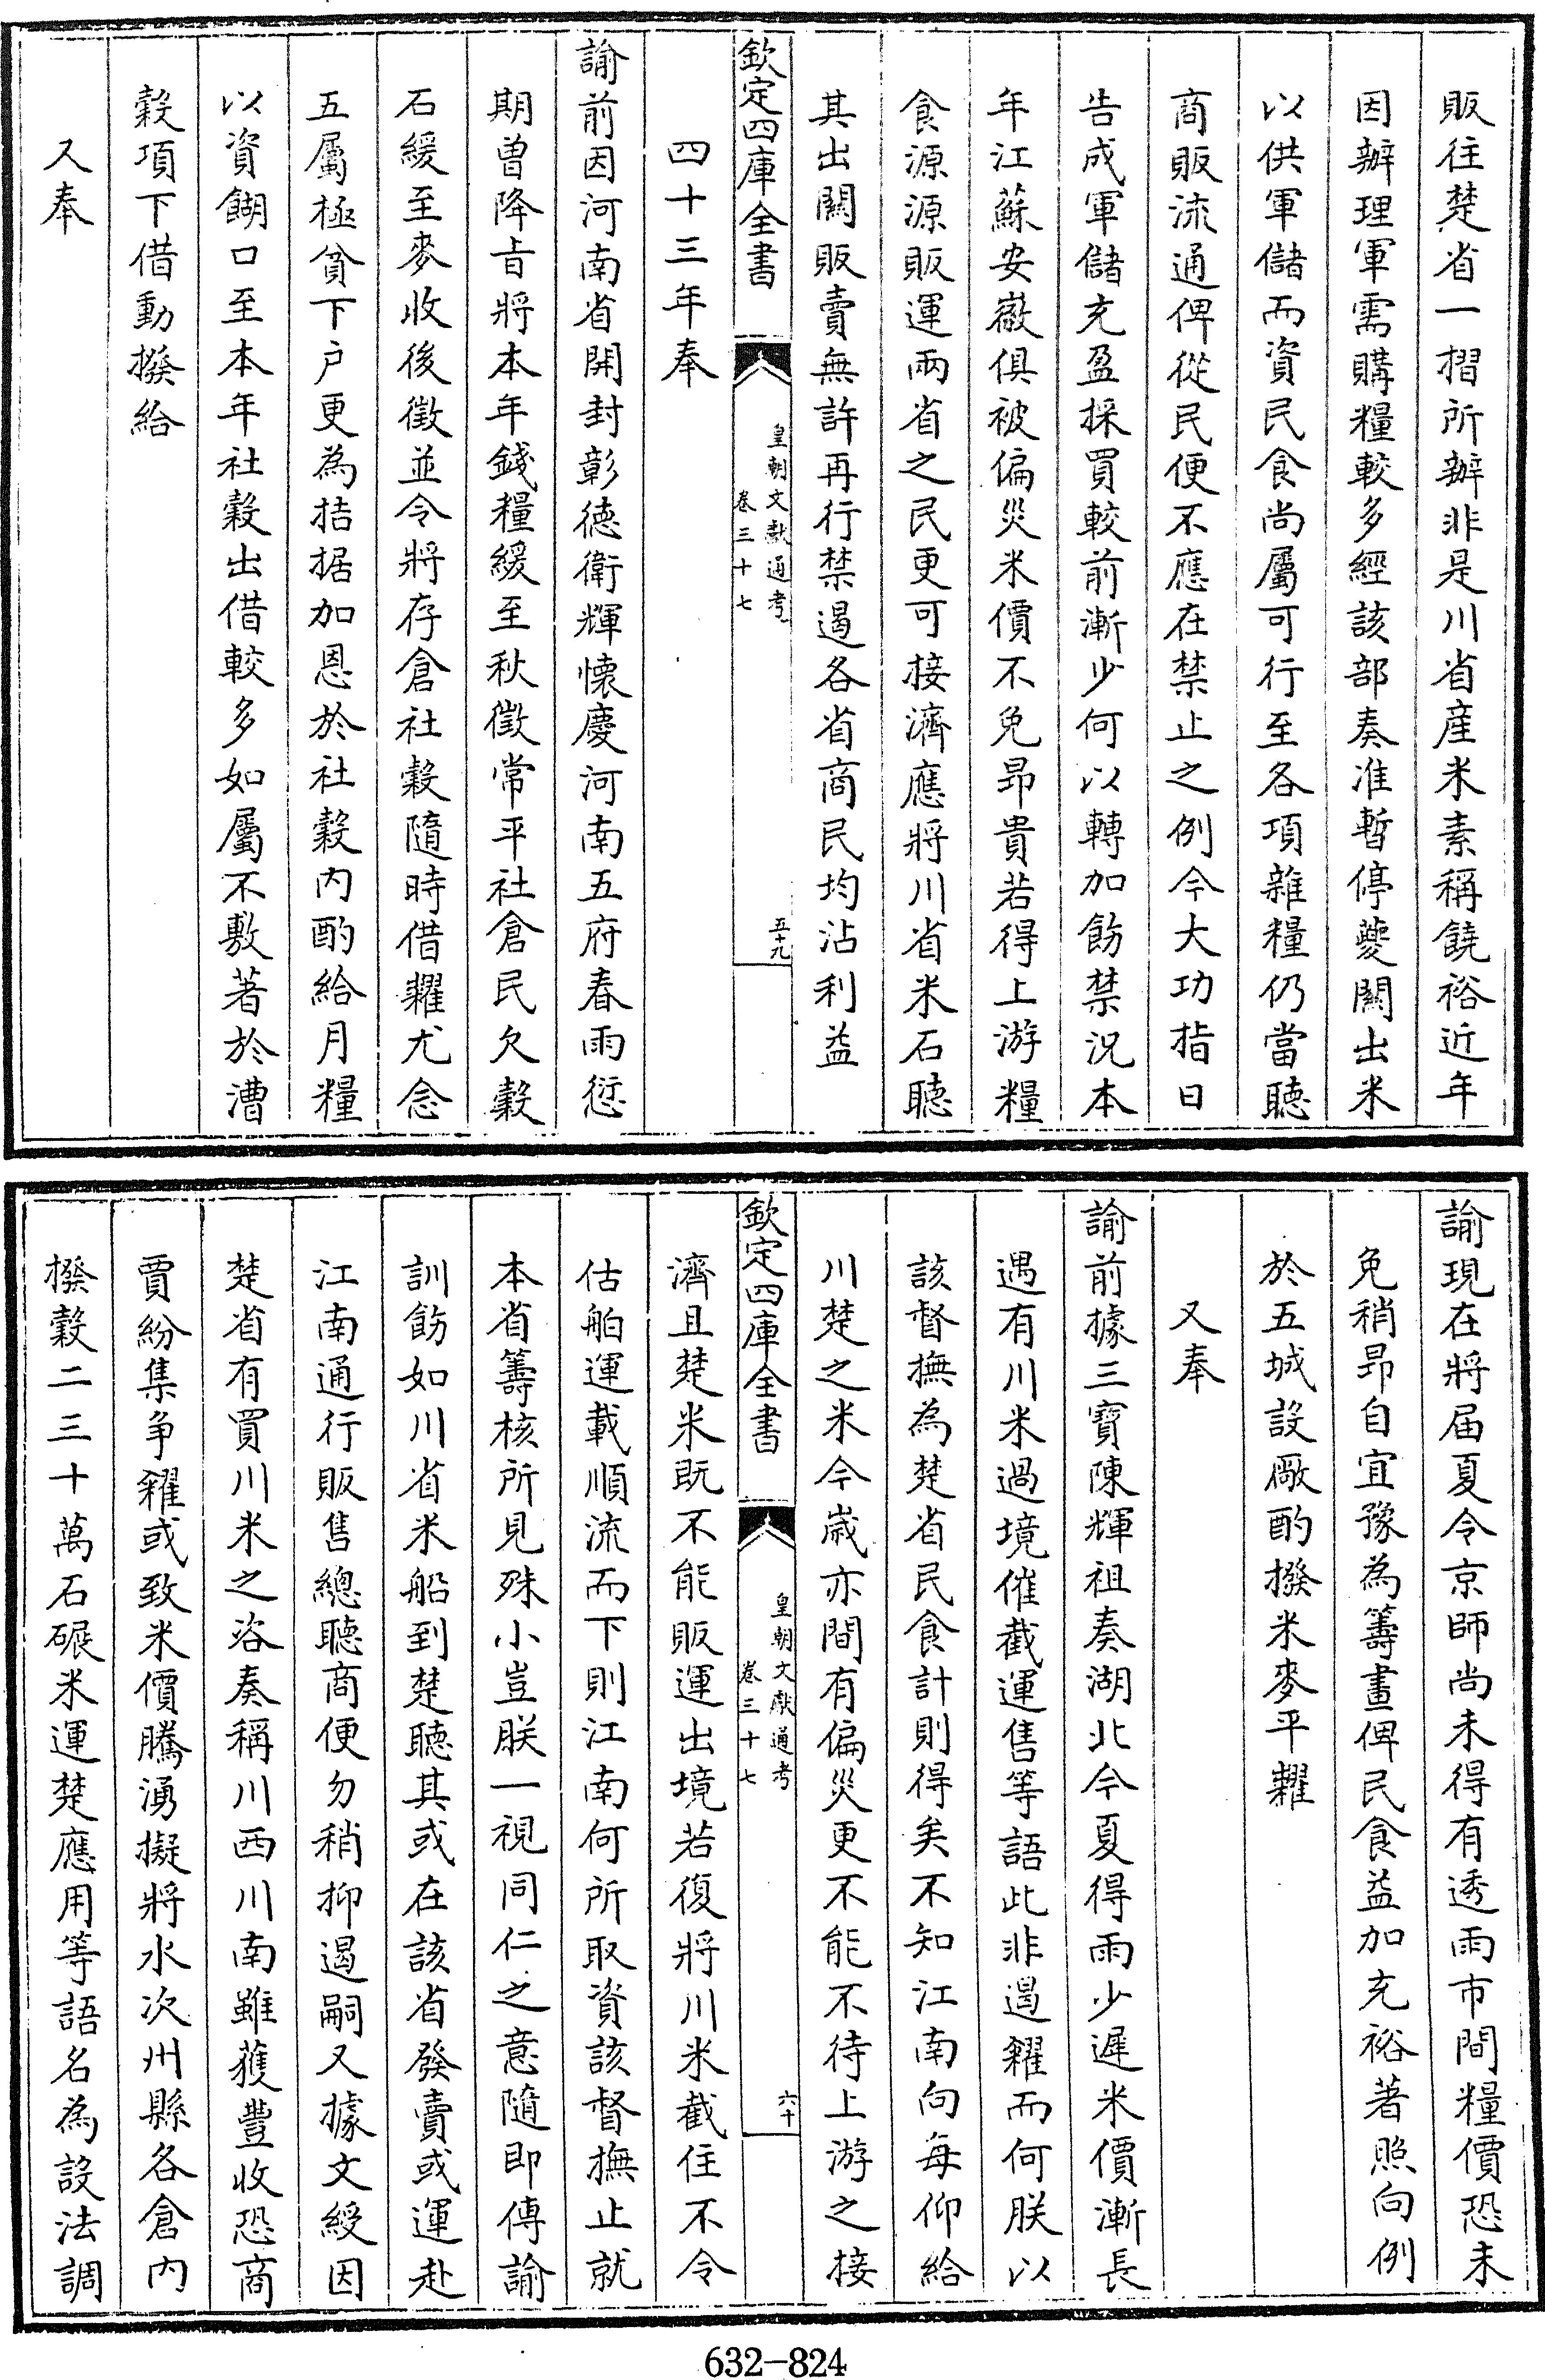 販往楚省一摺所辦非是川省産米素稱饒裕近年
因辦理軍需購糧較多經該部奏准暫停夔關出米
以供軍儲而資民食尚屬可行至各項雜糧仍當聽
商販流通俾從民便不應在禁止之例今大功指日
告成軍儲充盈採買較前漸少何以轉加飭禁況本
年江蘇安徽俱被偏災米價不免昂貴若得上游糧
食源源販運兩省之民更可接濟應將川省米石聽
其出關販賣無許再行禁遏各省商民均沾利益
欽定四庫全書
皇朝文獻通考
卷三十七
五十九
四十三年奉
諭前因河南省開封彰德衛輝懷慶河南五府春雨愆
期曾降旨將本年錢糧緩至秋徵常平社倉民欠穀
石緩至麥收後徵並令將存倉社穀隨時借糶尤念
五屬極貧下户更為拮据加恩於社穀内酌給月糧
以資餬口至本年社穀出借較多如屬不敷著於漕
穀項下借動撥給
又奉
諭現在將届夏令京師尚未得有透雨市間糧價恐未
免稍昂自宜豫為籌畫俾民食益加充裕著照向例
於五城設厰酌撥米麥平糶
又奉
諭前據三寶陳輝祖奏湖北今夏得雨少遲米價漸長
遇有川米過境催截運售等語此非遏糴而何朕以
該督撫為楚省民食計則得矣不知江南向每仰給
川楚之米今歲亦間有偏災更不能不待上游之接
欽定四庫全書
皇朝文獻通考
卷三十七
六十
濟且楚米既不能販運出境若復將川米截住不令
估舶運載順流而下則江南何所取資該督撫止就
本省籌核所見殊小豈朕一視同仁之意隨即傳諭
訓飭如川省米船到楚聽其或在該省發賣或運赴
江南通行販售總聽商便勿稍抑遏嗣又據文綬因
楚省有買川米之咨奏稱川西川南雖獲豐收恐商
賈紛集争糴或致米價騰湧擬將水次州縣各倉内
撥穀二三十萬石碾米運楚應用等語名為設法調
632-824